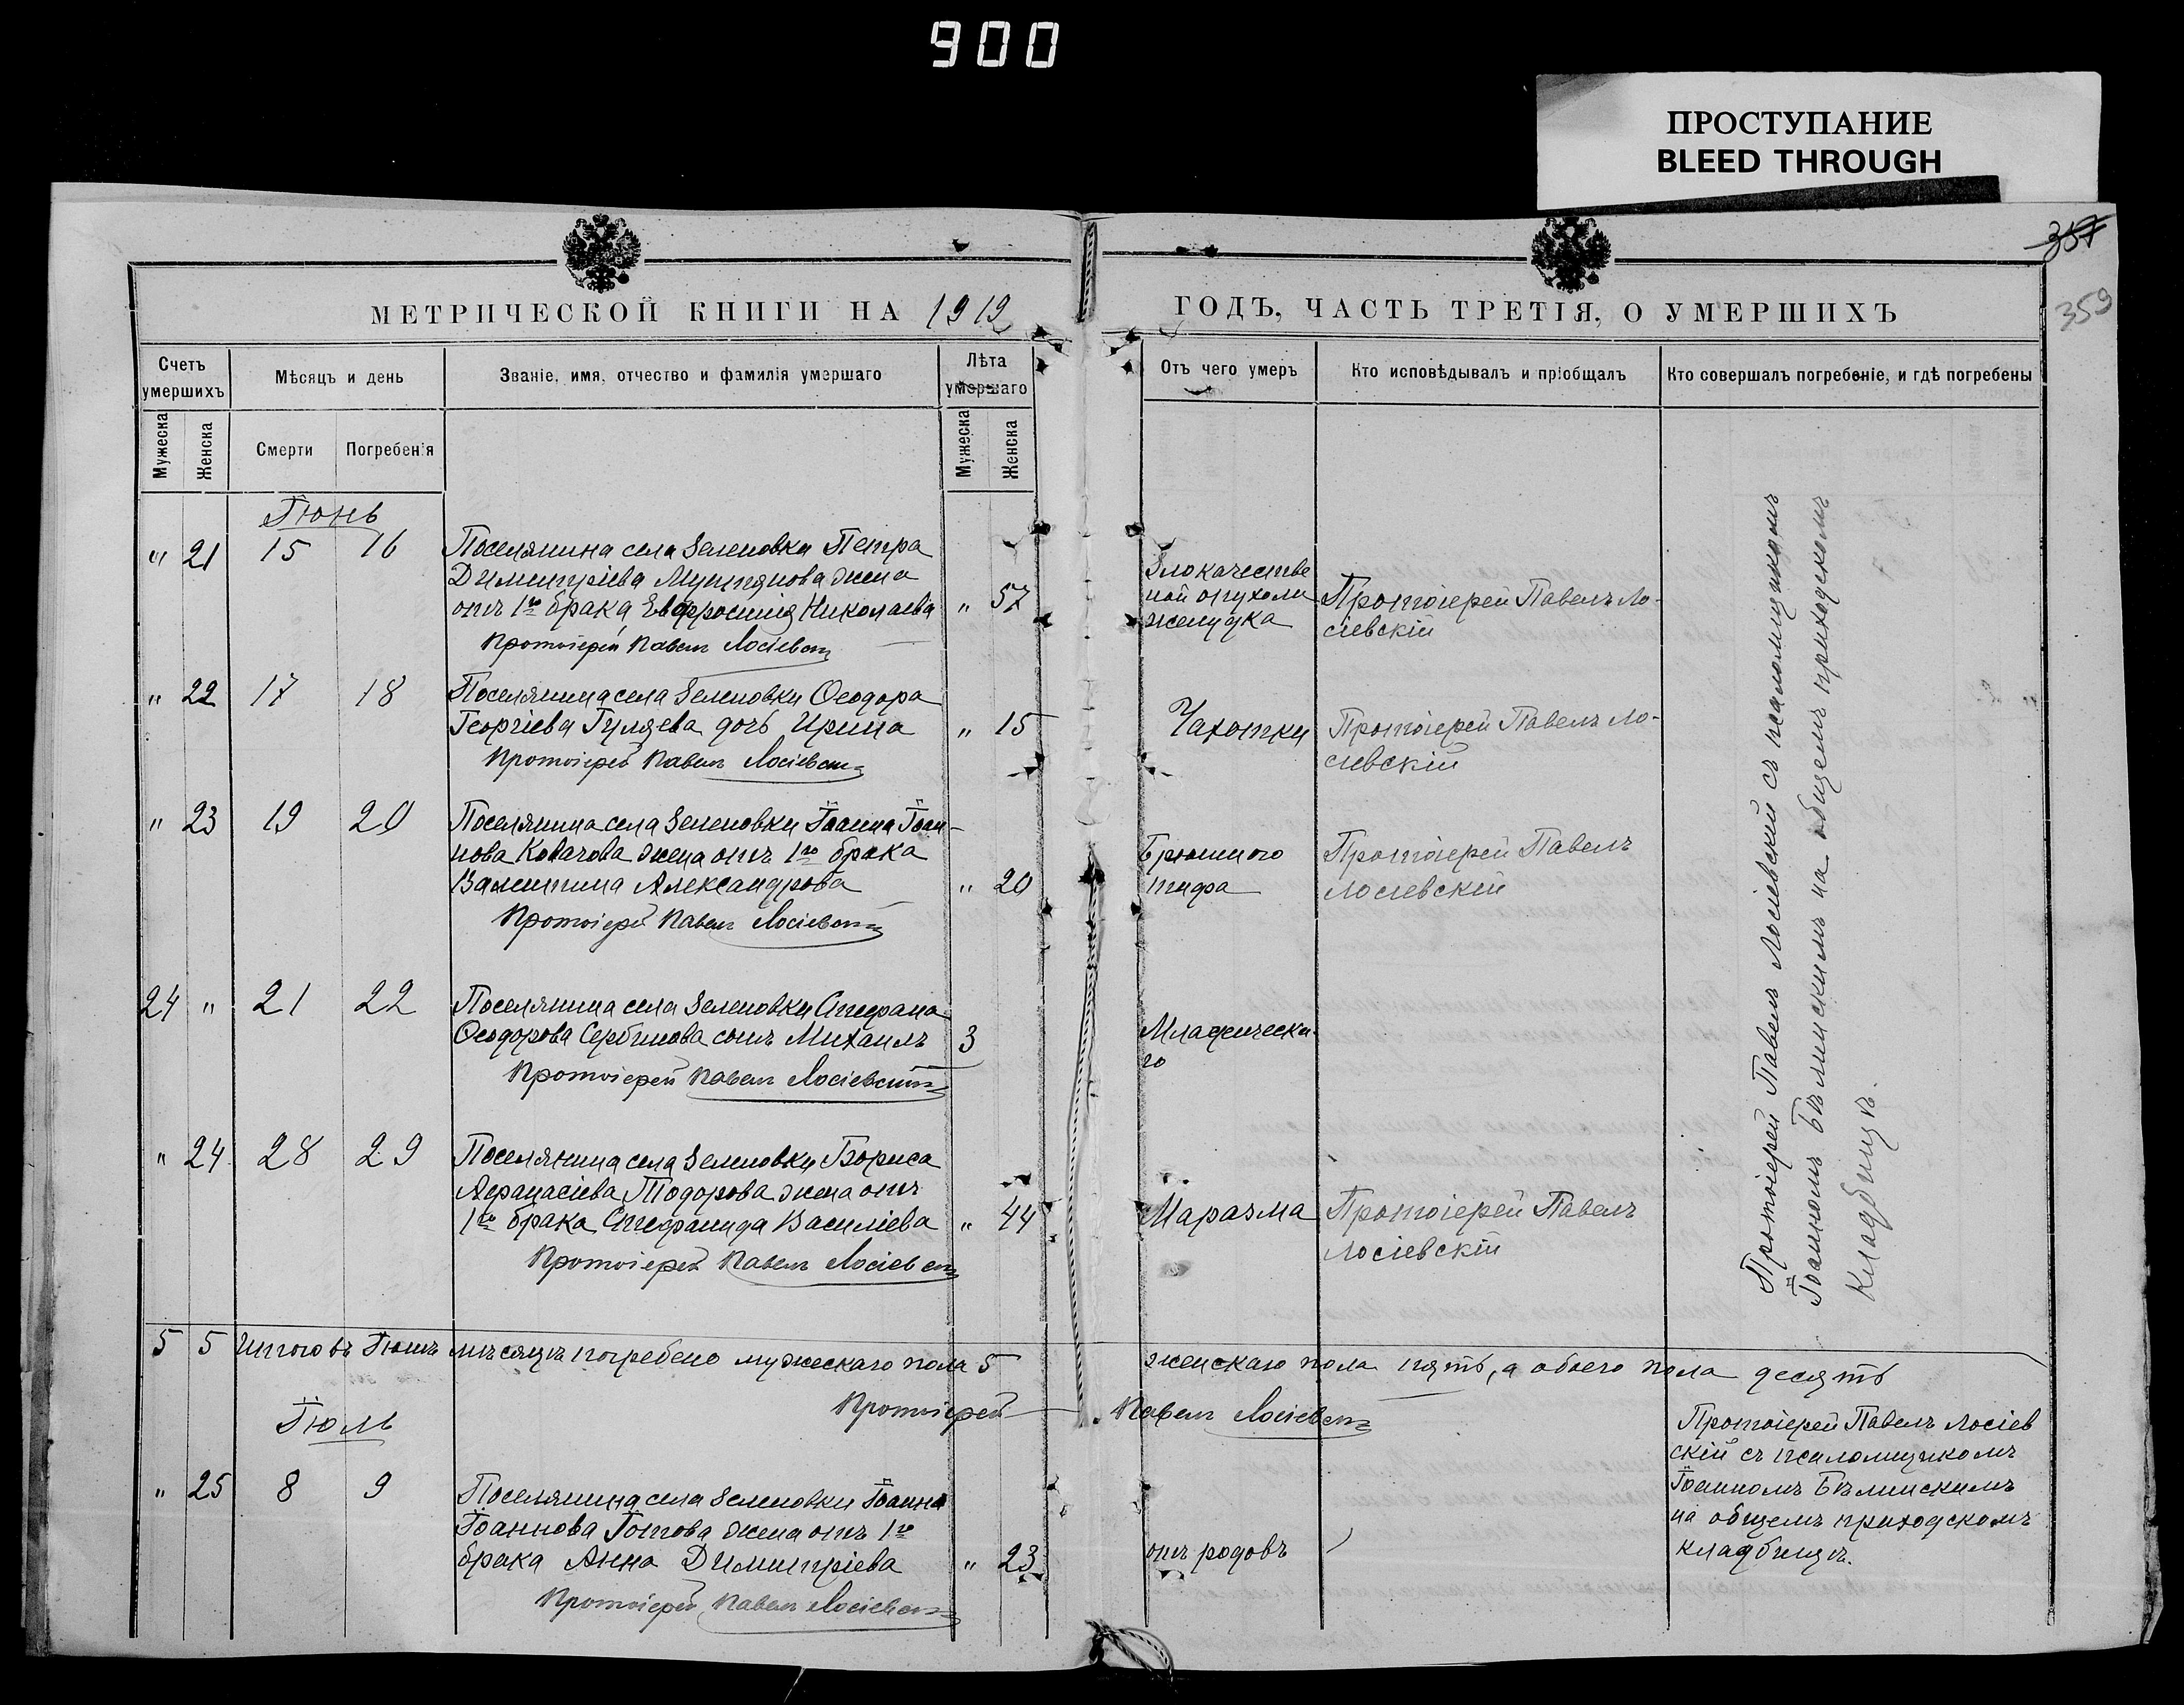 900
ПРОСТУПАНИЕ
BLEED THROUGH
357
359
МЕТРИЧЕСКОЙ КНИГИ НА 1912
ГОДЪ, ЧАСТЬ ТРЕТІЯ, О УМЕРШИХЪ
Счетъ умершихъ
Мѣсяцъ и день
Званіе, имя, отчество и фамилія умершаго
Лѣта умершаго
Отъ чего умеръ
Кто исповѣдывалъ и пріобщалъ
Кто совершалъ погребеніе, и гдѣ погребены
Мужеска
Женска
Смерти
Погребенія
Мужеска
Женска
Іюнь
" 21 15 16 Поселянина села Зеленовки Петра
Димитріева Мунтянова жена
отъ 1го брака Евфросинія Николаева " 57
Протоіерей Павелъ Лосіевскій
Злокачестве
ной опухоли
желудка
Протоіерей Павелъ Ло-
сіевскій
" 22 17 18 Поселянина села Зеленовки Ѳеодора
Георгіева Гуляева дочь Ирина " 15
Протоіерей Павелъ Лосіевскій
Чахотки
Протоіерей Павелъ Ло-
сіевскій
" 23 19 20 Поселянина села Зеленовки Іоанна Іоан-
нова Ковачова жена отъ 1го брака
Валентина Александрова " 20
Протоіерей Павелъ Лосіевскій
Брюшного
тифа
Протоіерей Павелъ
Лосіевскій
24 " 21 22 Поселянина села Зеленовки Стефана
Ѳеодорова Сербинова сынъ Михаилъ 3
Протоіерей Павелъ Лосіевскій
Младенческа-
го
" 24 28 29 Поселянина села Зеленовки Бориса
Афанасіева Тодорова жена отъ
1го брака Стефанида Василіева " 44
Протоіерей Павелъ Лосіевскій
Маразма
Протоіерей Павелъ
Лосіевскій
Протоіерей Павелъ Лосіевскій съ псаломщикомъ
Іоанномъ Бѣлинскимъ на общемъ приходскомъ
кладбищѣ.
5 5 Итого въ Іюнѣ мѣсяцѣ погребено мужескаго пола 5 женскаго пола пять, а обоего пола десять
Протоіерей Павелъ Лосіевскій
Іюль
" 25 8 9 Поселянина села Зеленовки Іоанна
Іоаннова Готова жена отъ 1го
брака Анна Димитріева " 23
Протоіерей Павелъ Лосіевскій
отъ родовъ
Протоіерей Павелъ Лосіев
скій съ псаломщикомъ
Іоанномъ Бѣлинскимъ
на общемъ приходскомъ
кладбищѣ.